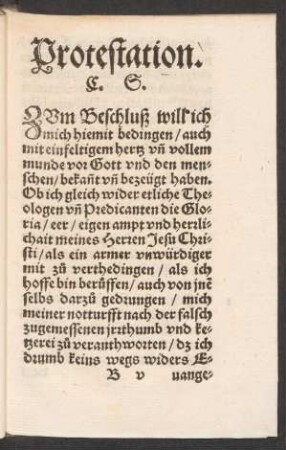 Protestation.
C. S.
ZVm Beschluß will ich
mich hiemit bedingen / auch
mit einfeltigem hertz vñ vollem
munde vor Gott vnd den men-
schen / bekañt vñ bezeügt haben.
Ob ich gleich wider etliche The-
ologen vñ Predicanten die Glo-
ria / eer / eigen ampt vnd herrli-
chait meines Herren Jesu Chri-
sti / als ein armer vnwürdiger
mit zů verthedingen / als ich
hoffe bin berůffen / auch von jnẽ
selbs darzů gedrungen / mich
meiner notturfft nach der falsch
zugemessenen jrrthumb vnd ke-
tzerei zů veranthworten / dz ich
drumb keins wegs widers E-
B v uange-